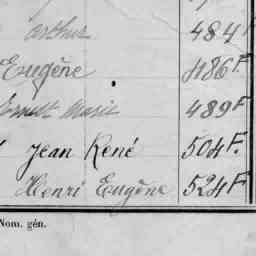 arthur 484 F
Eugène 486 F.
Ernest Marie 489 F
Jean René 504 F.
Henri Eugène 524 F
Nom. gén.